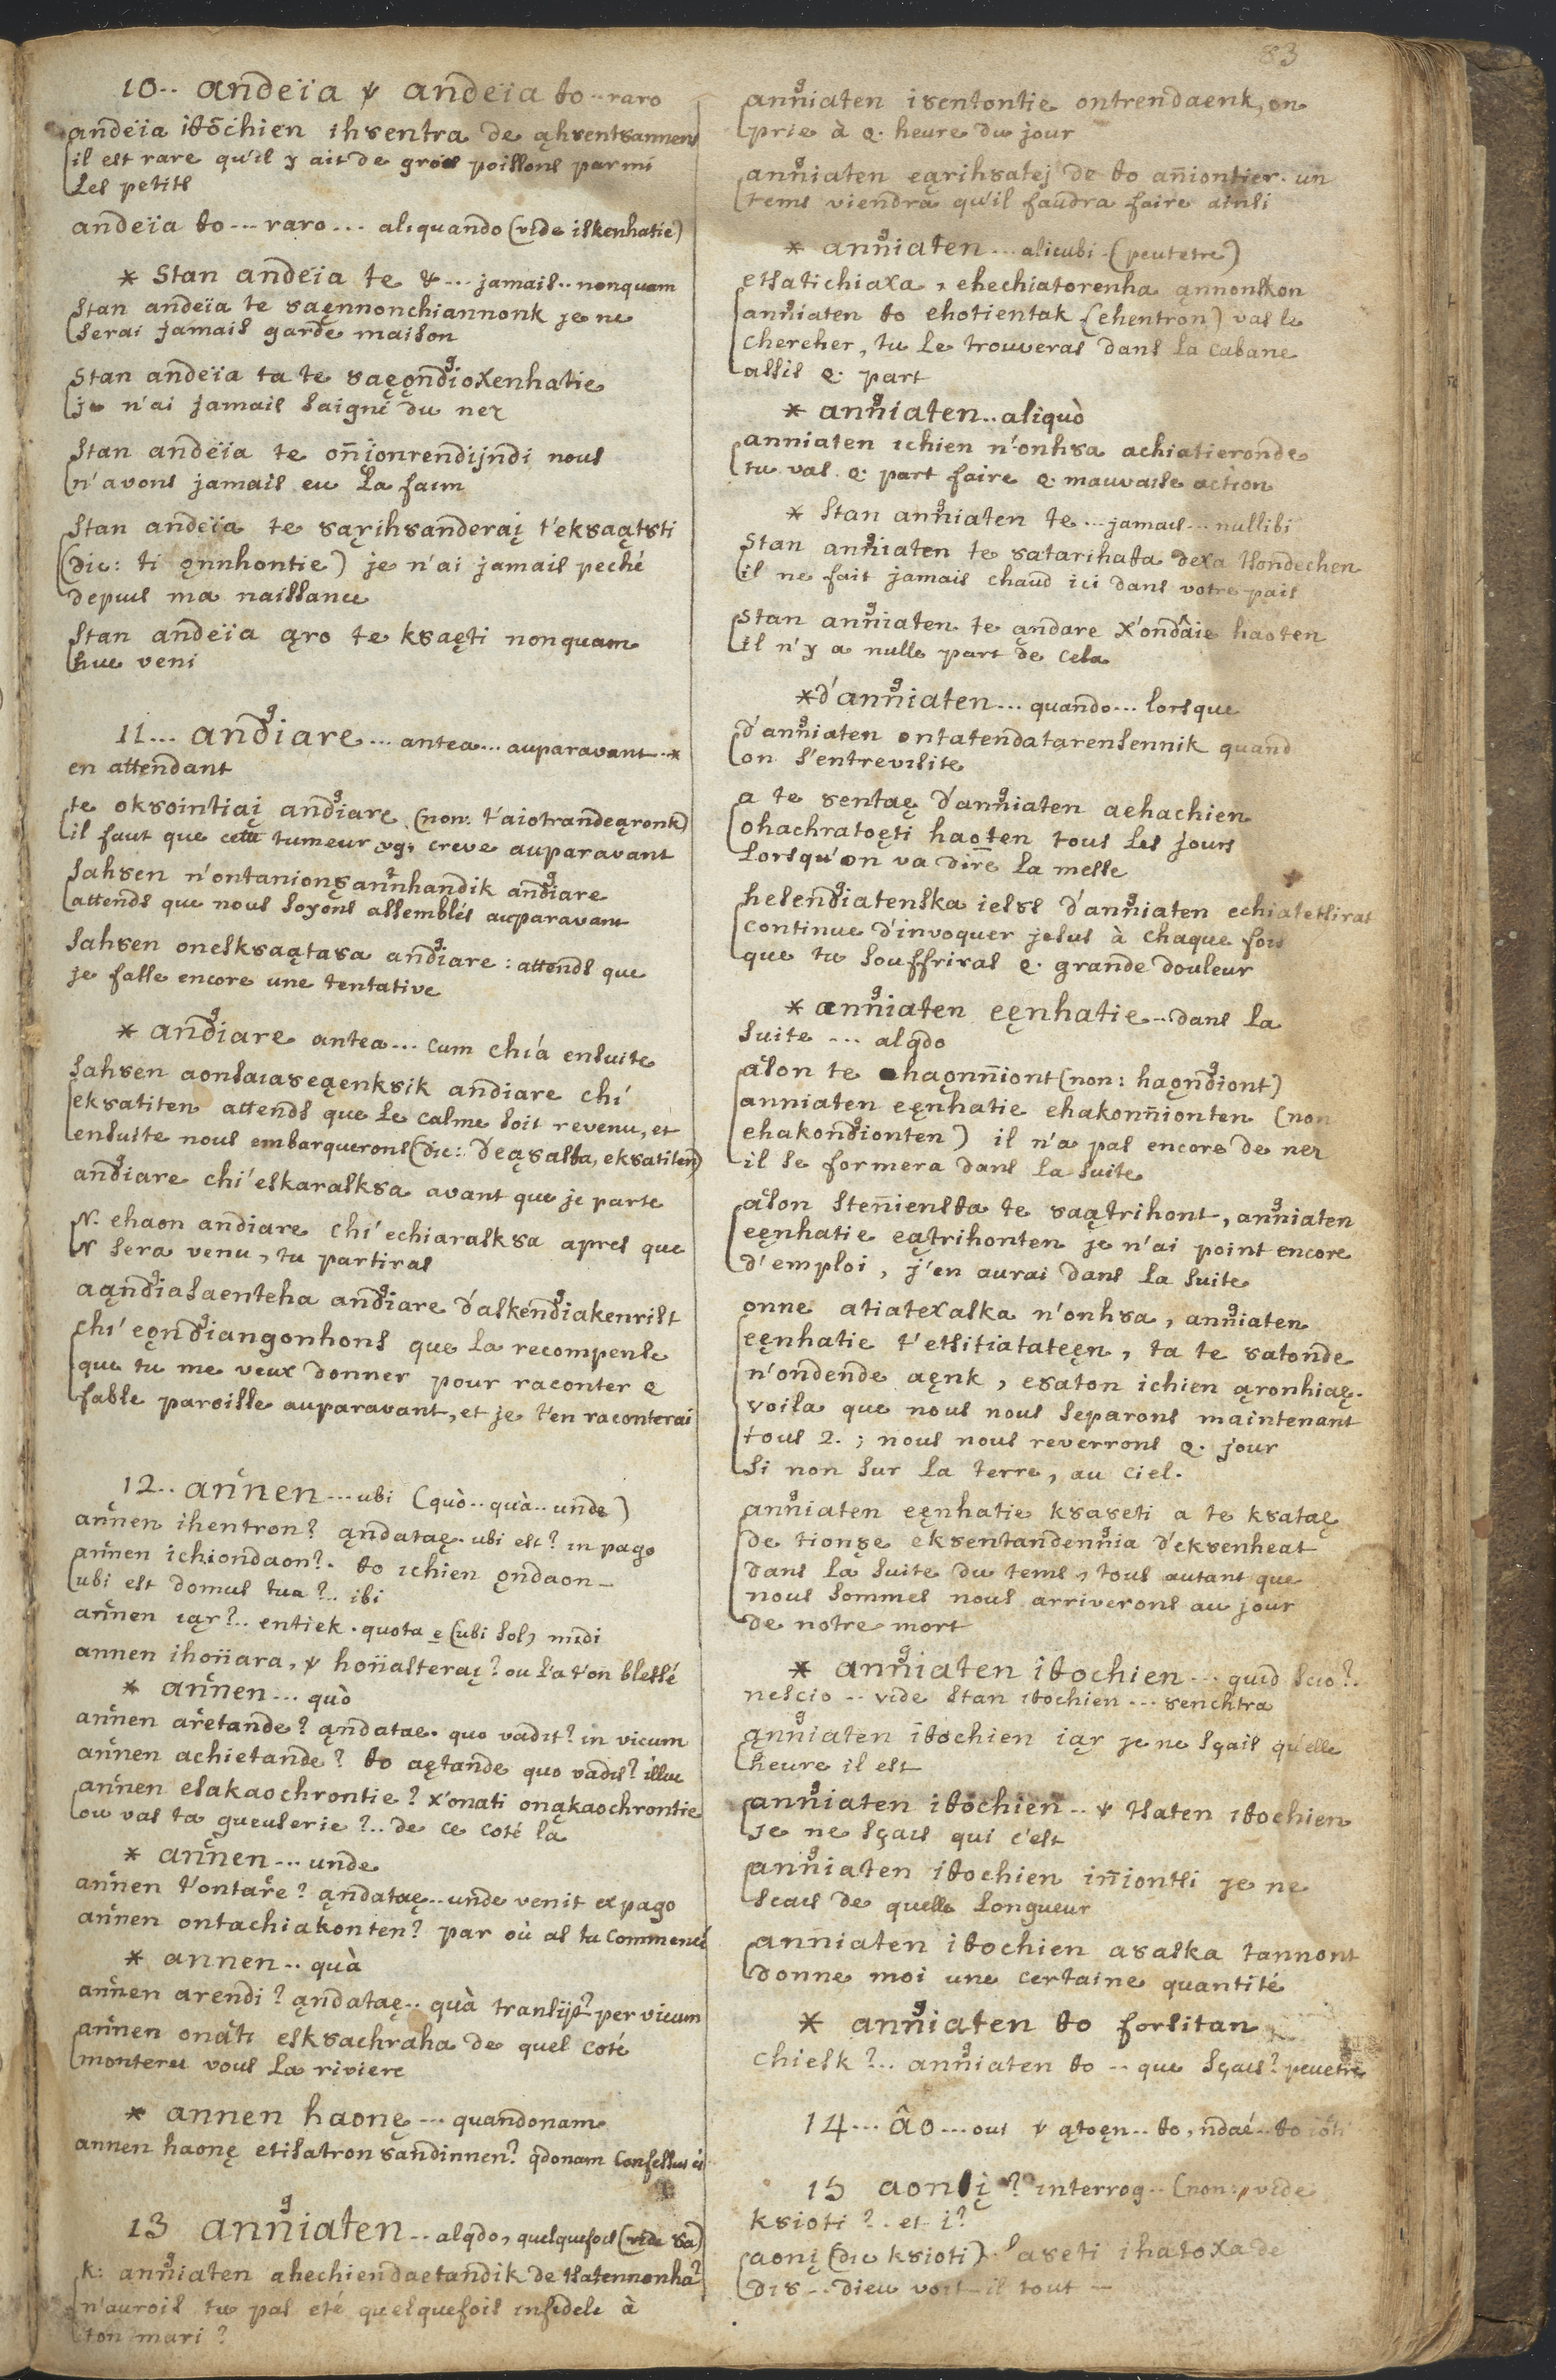 83
10.. andeïa ѱ andeïa to..raro
andeïa itochien ihȣentra de ąhȣentȣannens
il est rare qu'il y ait de gros poissons parmi
les petits
andeïa to... raro... aliquando (vide iskenhatie)
* Stan andeïa te &... jamais.. nonquam
stan andeïa te ȣaęnnonchiannonk je ne
serai jamais garde maison
stan andeïa ta te ȣaęǫndioxenhatie
je n'ai jamais saigné du nez
stan andeïa te oñionrendijndi nous
n'avons jamais eu la faim
stan andeïa te ȣąrihȣanderaį t'ekȣaątȣti
(dic: ti ǫnnhontie) je n'ai jamais peché
depuis ma naissance
stan andeïa ąro te kȣaęti nonquam
huc veni
11... andiare... antea... auparavant..*
en attendant
te okȣointiaį andiare (non: t'aiotrandeąronk)
il faut que cette tumeur vg. creve auparavant
sahȣen n'ontanionȣannhandik andiare
attends que nous soyons assemblés auparavant
sahȣen oneskȣaątaȣa andiare: attends que
je fasse encore une tentative
* andiare antea... cum chi'a ensuite
sahȣen aonsaiaȣeąenkȣik andiare chi'
ekȣatiten attends que le calme soit revenu, et
ensuite nous embarquerons (dic: deąȣasta, ekȣatiten)
andiare chi'eskaraskȣa avant que je parte
N. ehaon andiare chi'echiaraskȣa apres que
N sera venu, tu partiras
aąndiasaenteha andiare d'askendiakenrist
chi'eǫndiangonhons que la recompense
que tu me veux donner pour raconter Q
fable paroisse auparavant, et je t'en raconterai
12.. annen... ubi (quò.. quà.. unde)
annen ihentron? ąndataę. ubi est? in pago
annen ichiondaon?. to ichien ǫndaon_
ubi est domus tua?.. ibi
annen iąr?.. entiek. quota e (ubi sol) midi
annen ihonara, ѱ honasteraį? ou l'a t'on blessé
* annen... quò
annen aretande? ąndatae. quo vadit? in vicum
annen achietande? to aętande quo vadis? illuc
annen esakaochrontie? x'onati onąkaochrontie
ou vas ta gueuserie?.. de ce coté la
* annen... unde
annen t'ontare? ąndataę.. unde venit ex pago
annen ontachiakonten? par où as tu commencé
* annen.. quà
annen arendi? ąndataę.. quà transijt? per vicum
annen onati eskȣachraha de quel coté
monterez vous la riviere
* annen haonę... quandonam
annen haonę etisatronȣandinnen? qdonam confessus es
13 anniaten.. alqdo, quelquefois (vide ȣa)
K: anniaten ahechiendaetandik de tsatennonha?
n'aurois tu pas eté quelquefois infidele à
ton mari?
anniaten iȣentontie ontrendaenk, on
prie à Q. heure du jour
anniaten eąrihȣatej de to añiontier. un
tems viendra qu'il faudra faire ainsi
* anniaten... alicubi (peutetre)
etsatichiaxa, ehechiatorenha ąnnonskon
anniaten to ehotientak (ehentron) vas le
chercher, tu le trouveras dans la cabane
assis Q. part
* anniaten.. aliquò
anniaten ichien n'onhȣa achiatieronde
tu vas Q. part faire Q. mauvaise action
* stan anniaten te... jamais... nullibi
stan anniaten te ȣatarihata dexa tsondechen
il ne fait jamais chaud ici dans votre païs
stan anniaten te ąndare x'ondâie haoten
il n'y a nulle part de cela
*d'anniaten... quando... lorsque
d'anniaten ontatendatarensennik quand
on s'entrevisite
a te ȣentaę d'anniaten aehachien
ohachratoęti haoten tous les jours
lorsqu'on va dire la messe
hesendiatenska iesȣs d'anniaten echiatetsirat
continue d'invoquer jesus à chaque fois
que tu souffriras Q. grande douleur
* anniaten eęnhatie.. dans la
suite... alqdo
ason te haǫnniont (non: haǫndiont)
anniaten eęnhatie ehakonnionten (non
ehakondionten) il n'a pas encore de nez
il se formera dans la suite
ason steniensta te ȣaątrihont, anniaten
eęnhatie eątrihonten je n'ai point encore
d'emploi, j'en aurai dans la suite
onne atiatexaska n'onhȣa, anniaten
eęnhatie t'etsitiatateęn, ta te ȣatonde
n'ondende aęnk, eȣaton ichien ąronhiaę.
voila que nous nous separons maintenant
tous 2.; nous nous reverrons Q. jour
si non sur la terre, au ciel.
anniaten eęnhatie kȣaȣeti a te kȣataę
de tionȣe ekȣentandennia d'ekȣenheat
dans la suite du tems, tous autant que
nous sommes nous arriverons au jour
de notre mort
* anniaten itochien... quid scio?.
nescio.. vide stan itochien... ȣenchtra
ąnniaten itochien iąr je ne sçais qu'elle
heure il est
anniaten itochien.. ѱ tsaten itochien
je ne sçais qui c'est
anniaten itochien iñiontsi je ne
scais de quelle longueur
anniaten itochien aȣaska tannont
donne moi une certaine quantité
* anniaten to forsitan
chiesk?.. anniaten to.. que sçais? peuetre
14... âo... oui ѱ ątoęn.. to, ndaé.. to ioti
15 aonsį? interrog.. (non: vide
kȣioti?.. et i?
aonį (dic kȣioti) aȣeti ihatoxa de
diȣ.. dieu voit-il tout —